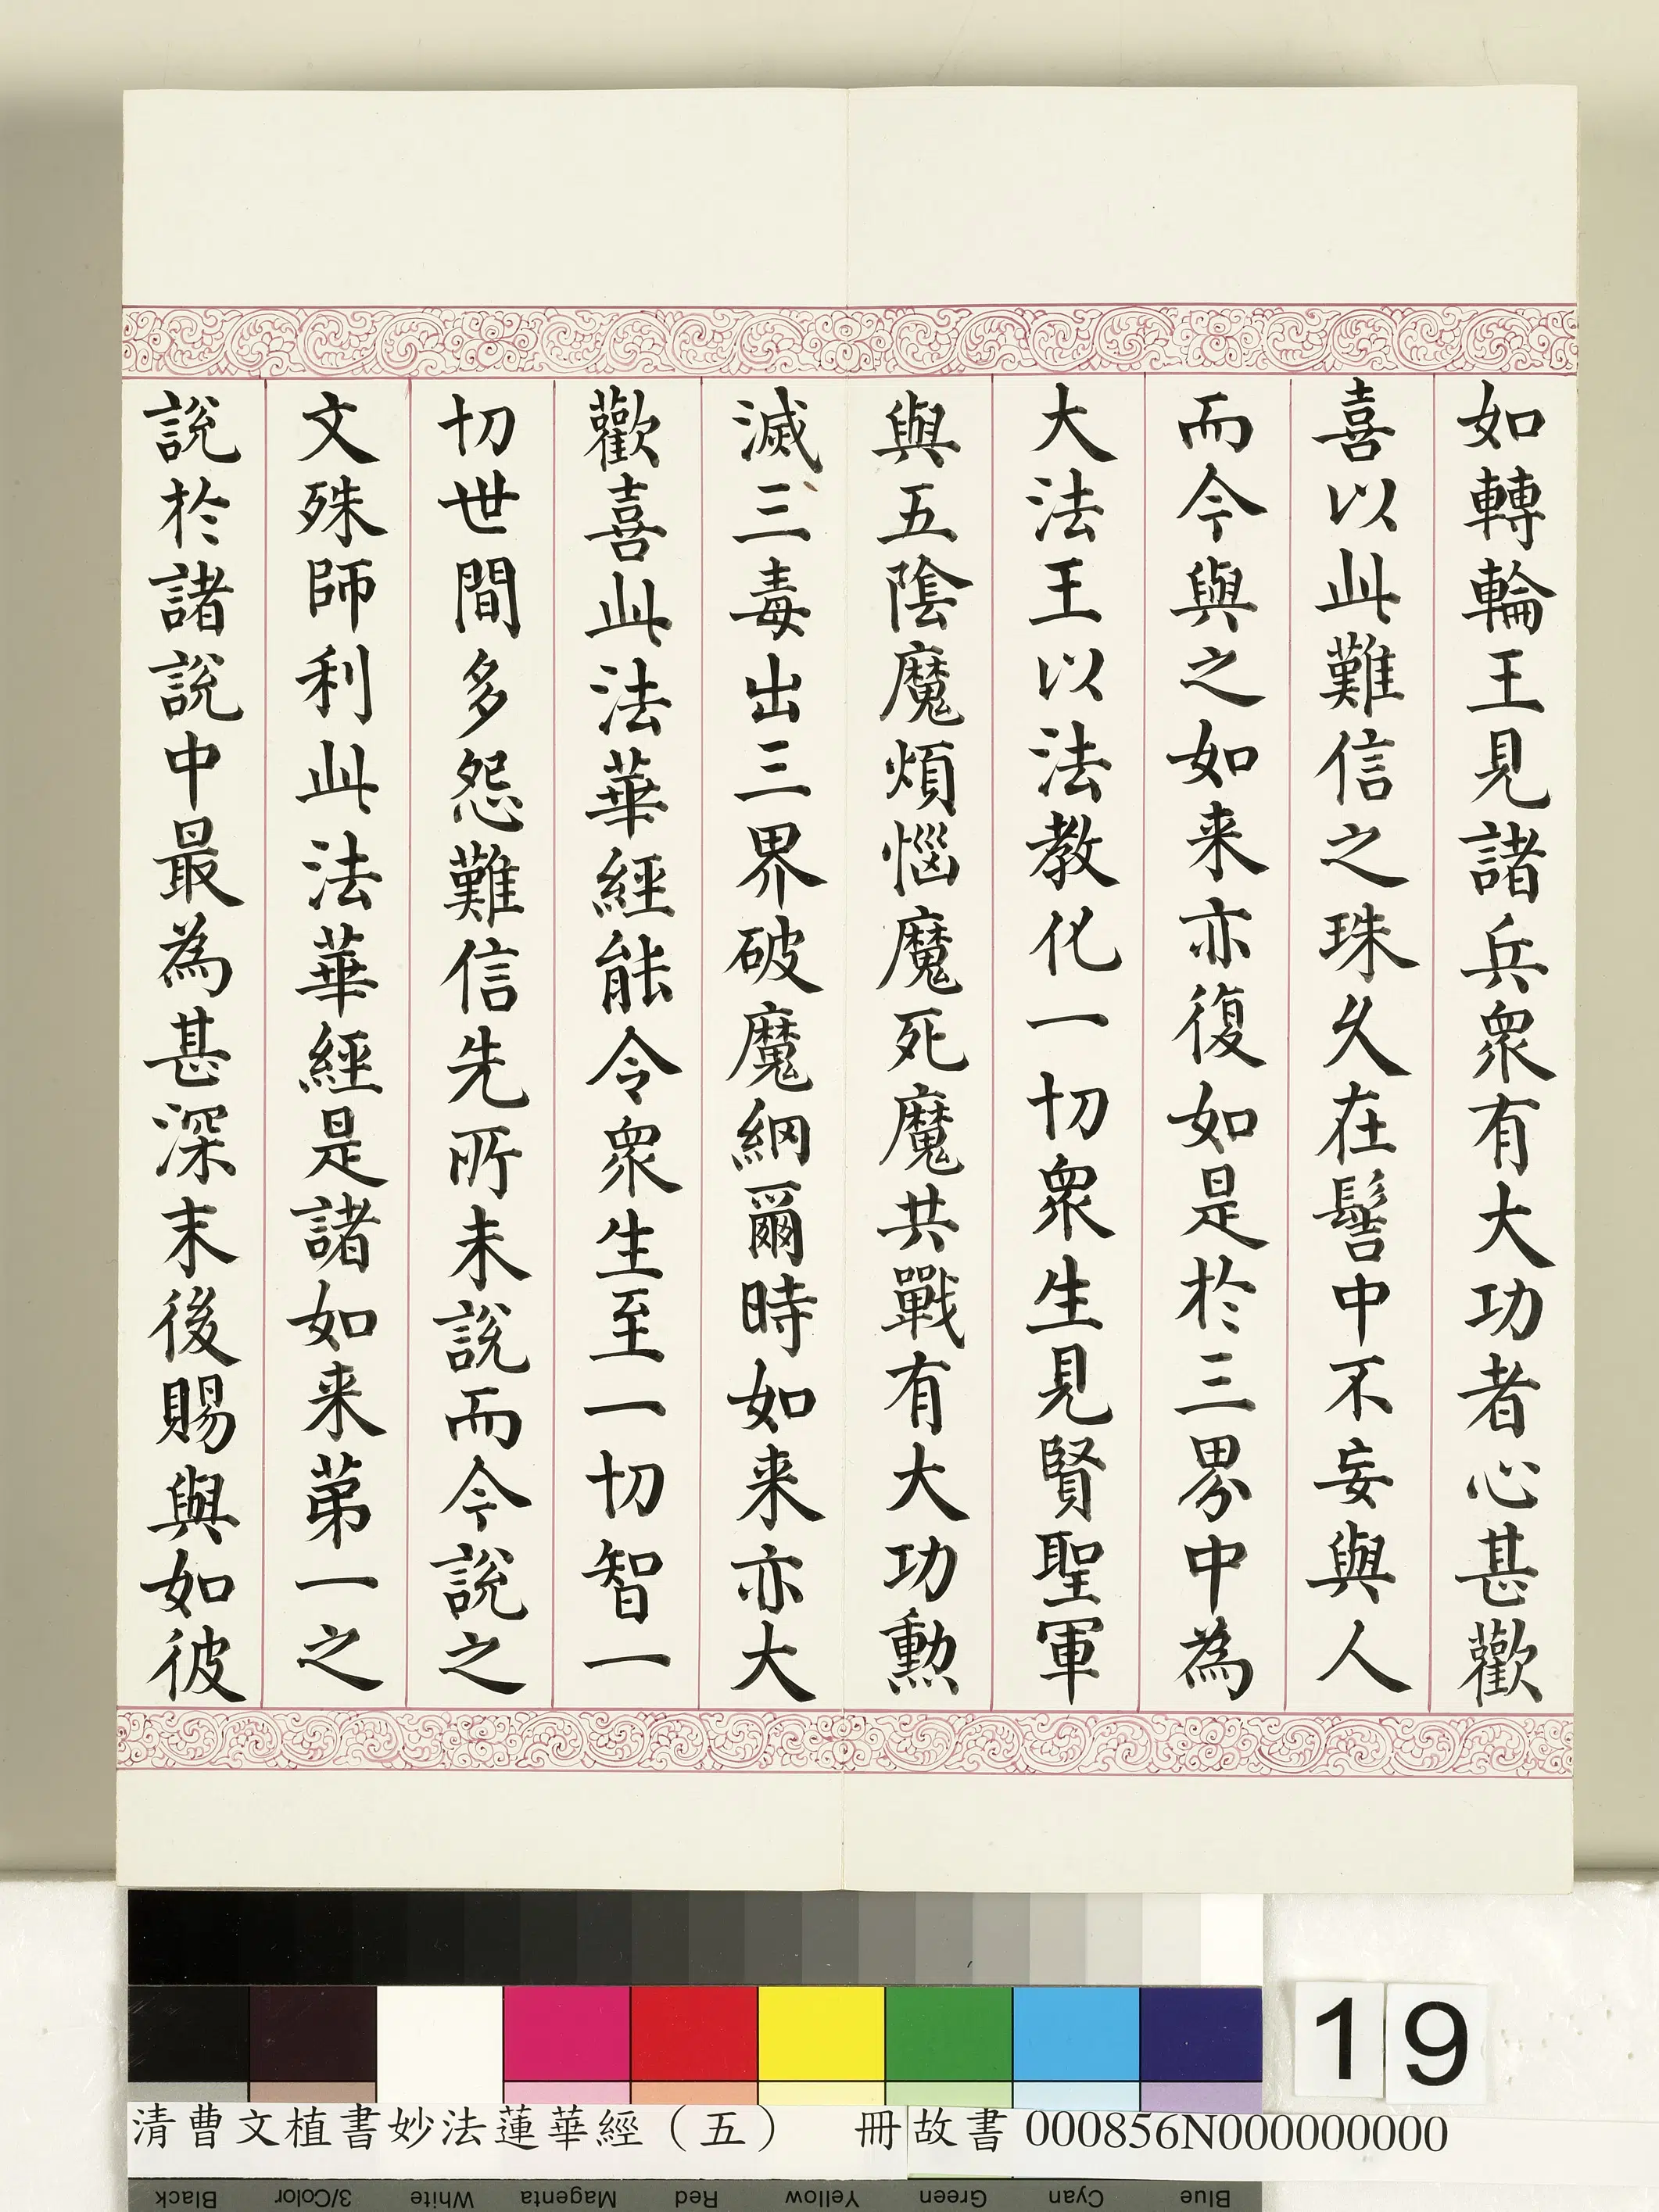 如轉輪王見諸兵眾有大功者心甚歡
喜以此難信之珠久在髻中不妄與人
而今與之如来亦復如是於三界中為
大法王以法教化一切眾生見賢聖軍
與五陰魔煩惱魔死魔共戰有大功勲
滅三毒出三界破魔網爾時如来亦大
歡喜此法華經能令眾生至一切智一
切世間多怨難信先所未說而今說之
文殊師利此法華經是諸如来苐一之
說於諸說中最為甚深末後賜與如彼
19
清曹文植書妙法蓮華經（五） 冊 故書000856N000000000
Black 3/Color White Magenta Red Yellow Green Cyan Blue